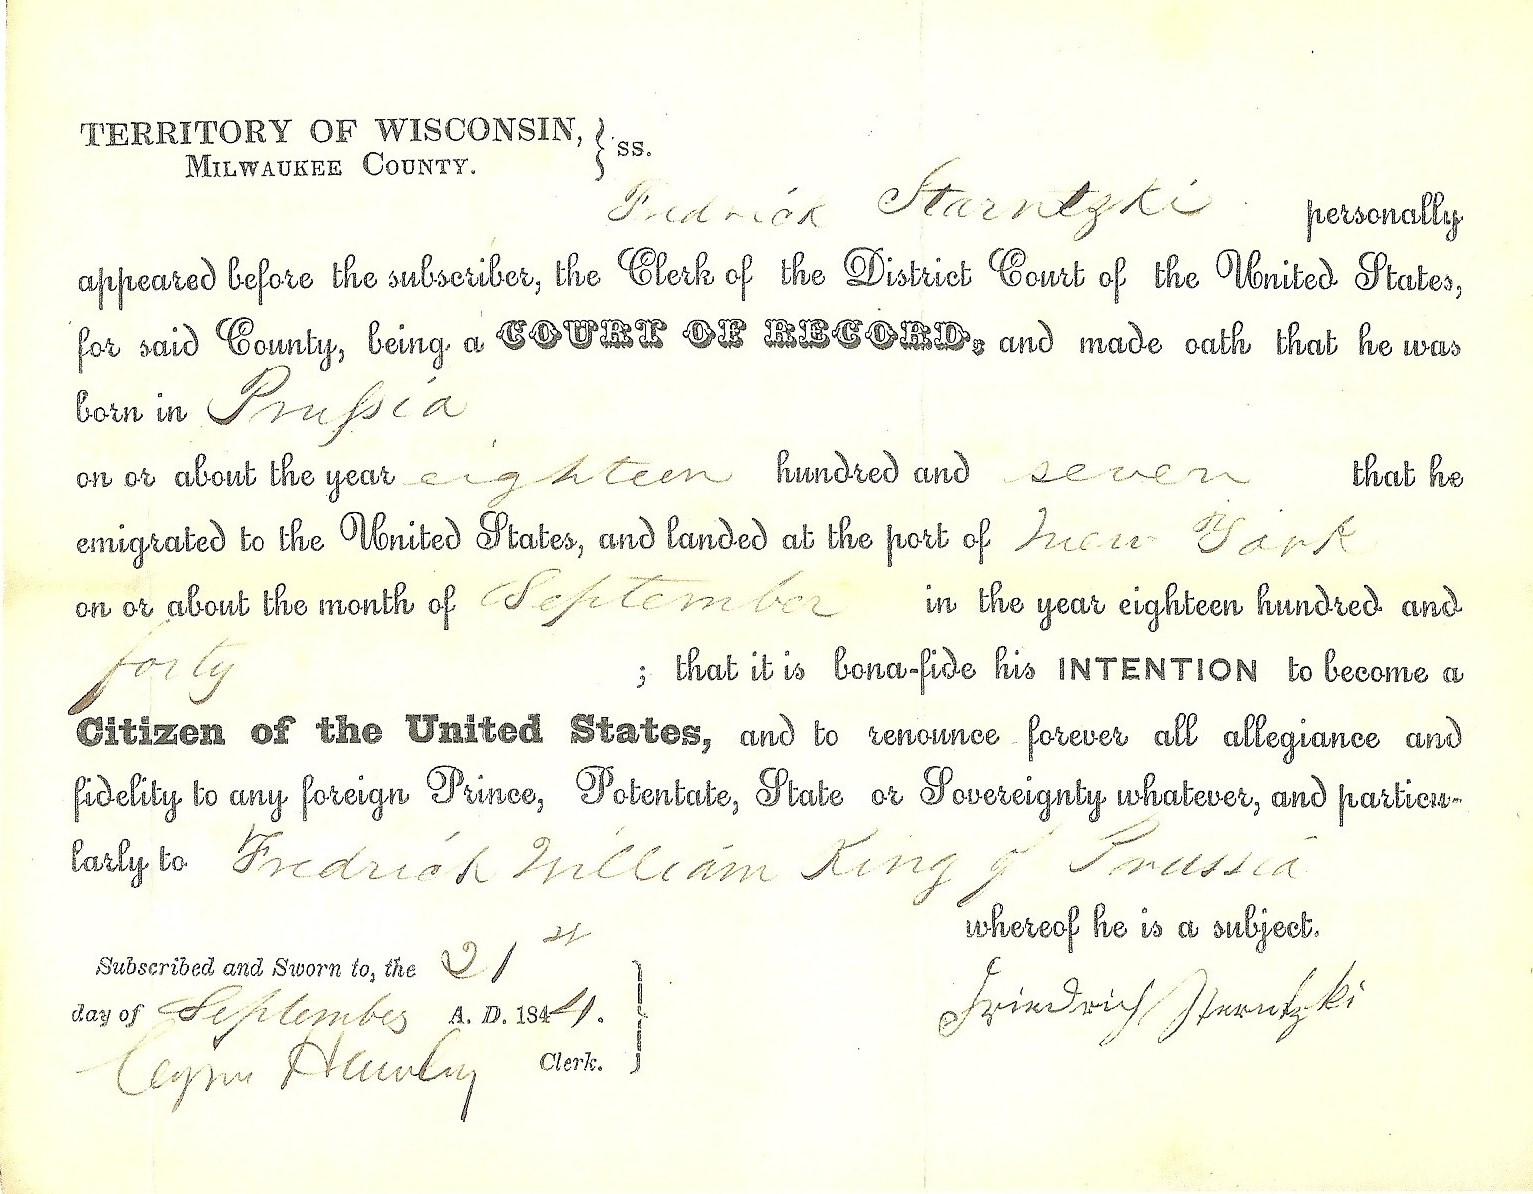 TERRITORY OF WISCONSIN, } ss.
MILWAUKEE COUNTY.
Fredrick Starntzki personally
appeared before the subscriber, the Clerk of the District Court of the United States,
for said County, being a COURT OF RECORD, and made oath that he was
born in Prussia
on or about the year eighteen hundred and seven that he
emigrated to the United States, and landed at the port of New York
on or about the month of September in the year eighteen hundred and
forty ; that it is bona-fide his INTENTION to become a
Citizen of the United States, and to renounce forever all allegiance and
fidelity to any foreign Prince, Potentate, State or Sovereignty whatever, and particu-
larly to Fredrick William King of Prussia
whereof he is a subject.
Subscribed and Sworn to, the 21st
day of September A. D. 1844.
Cyrus Hawley Clerk.
Friedrich Sterntzki